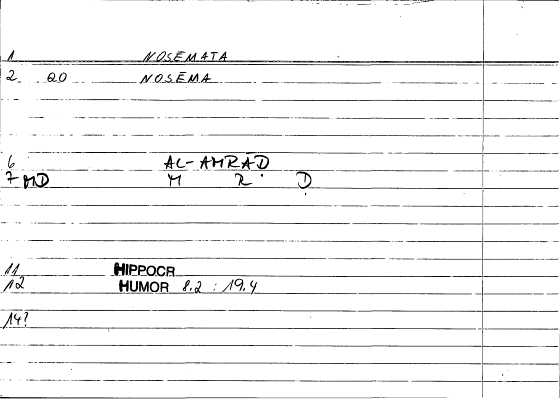 1 NOSEMATA
2 QO NOSEMA
6 AL-AMRĀḌ
7 MD M R Ḍ
11 HIPPOCR
12 HUMOR 8.2 : 19.4
14?